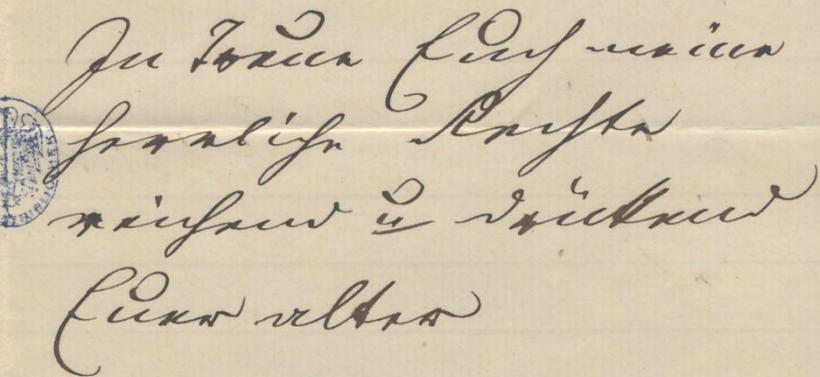 In Treue Euch meine
herrliche Rechte
reichend u drückend
Euer alter